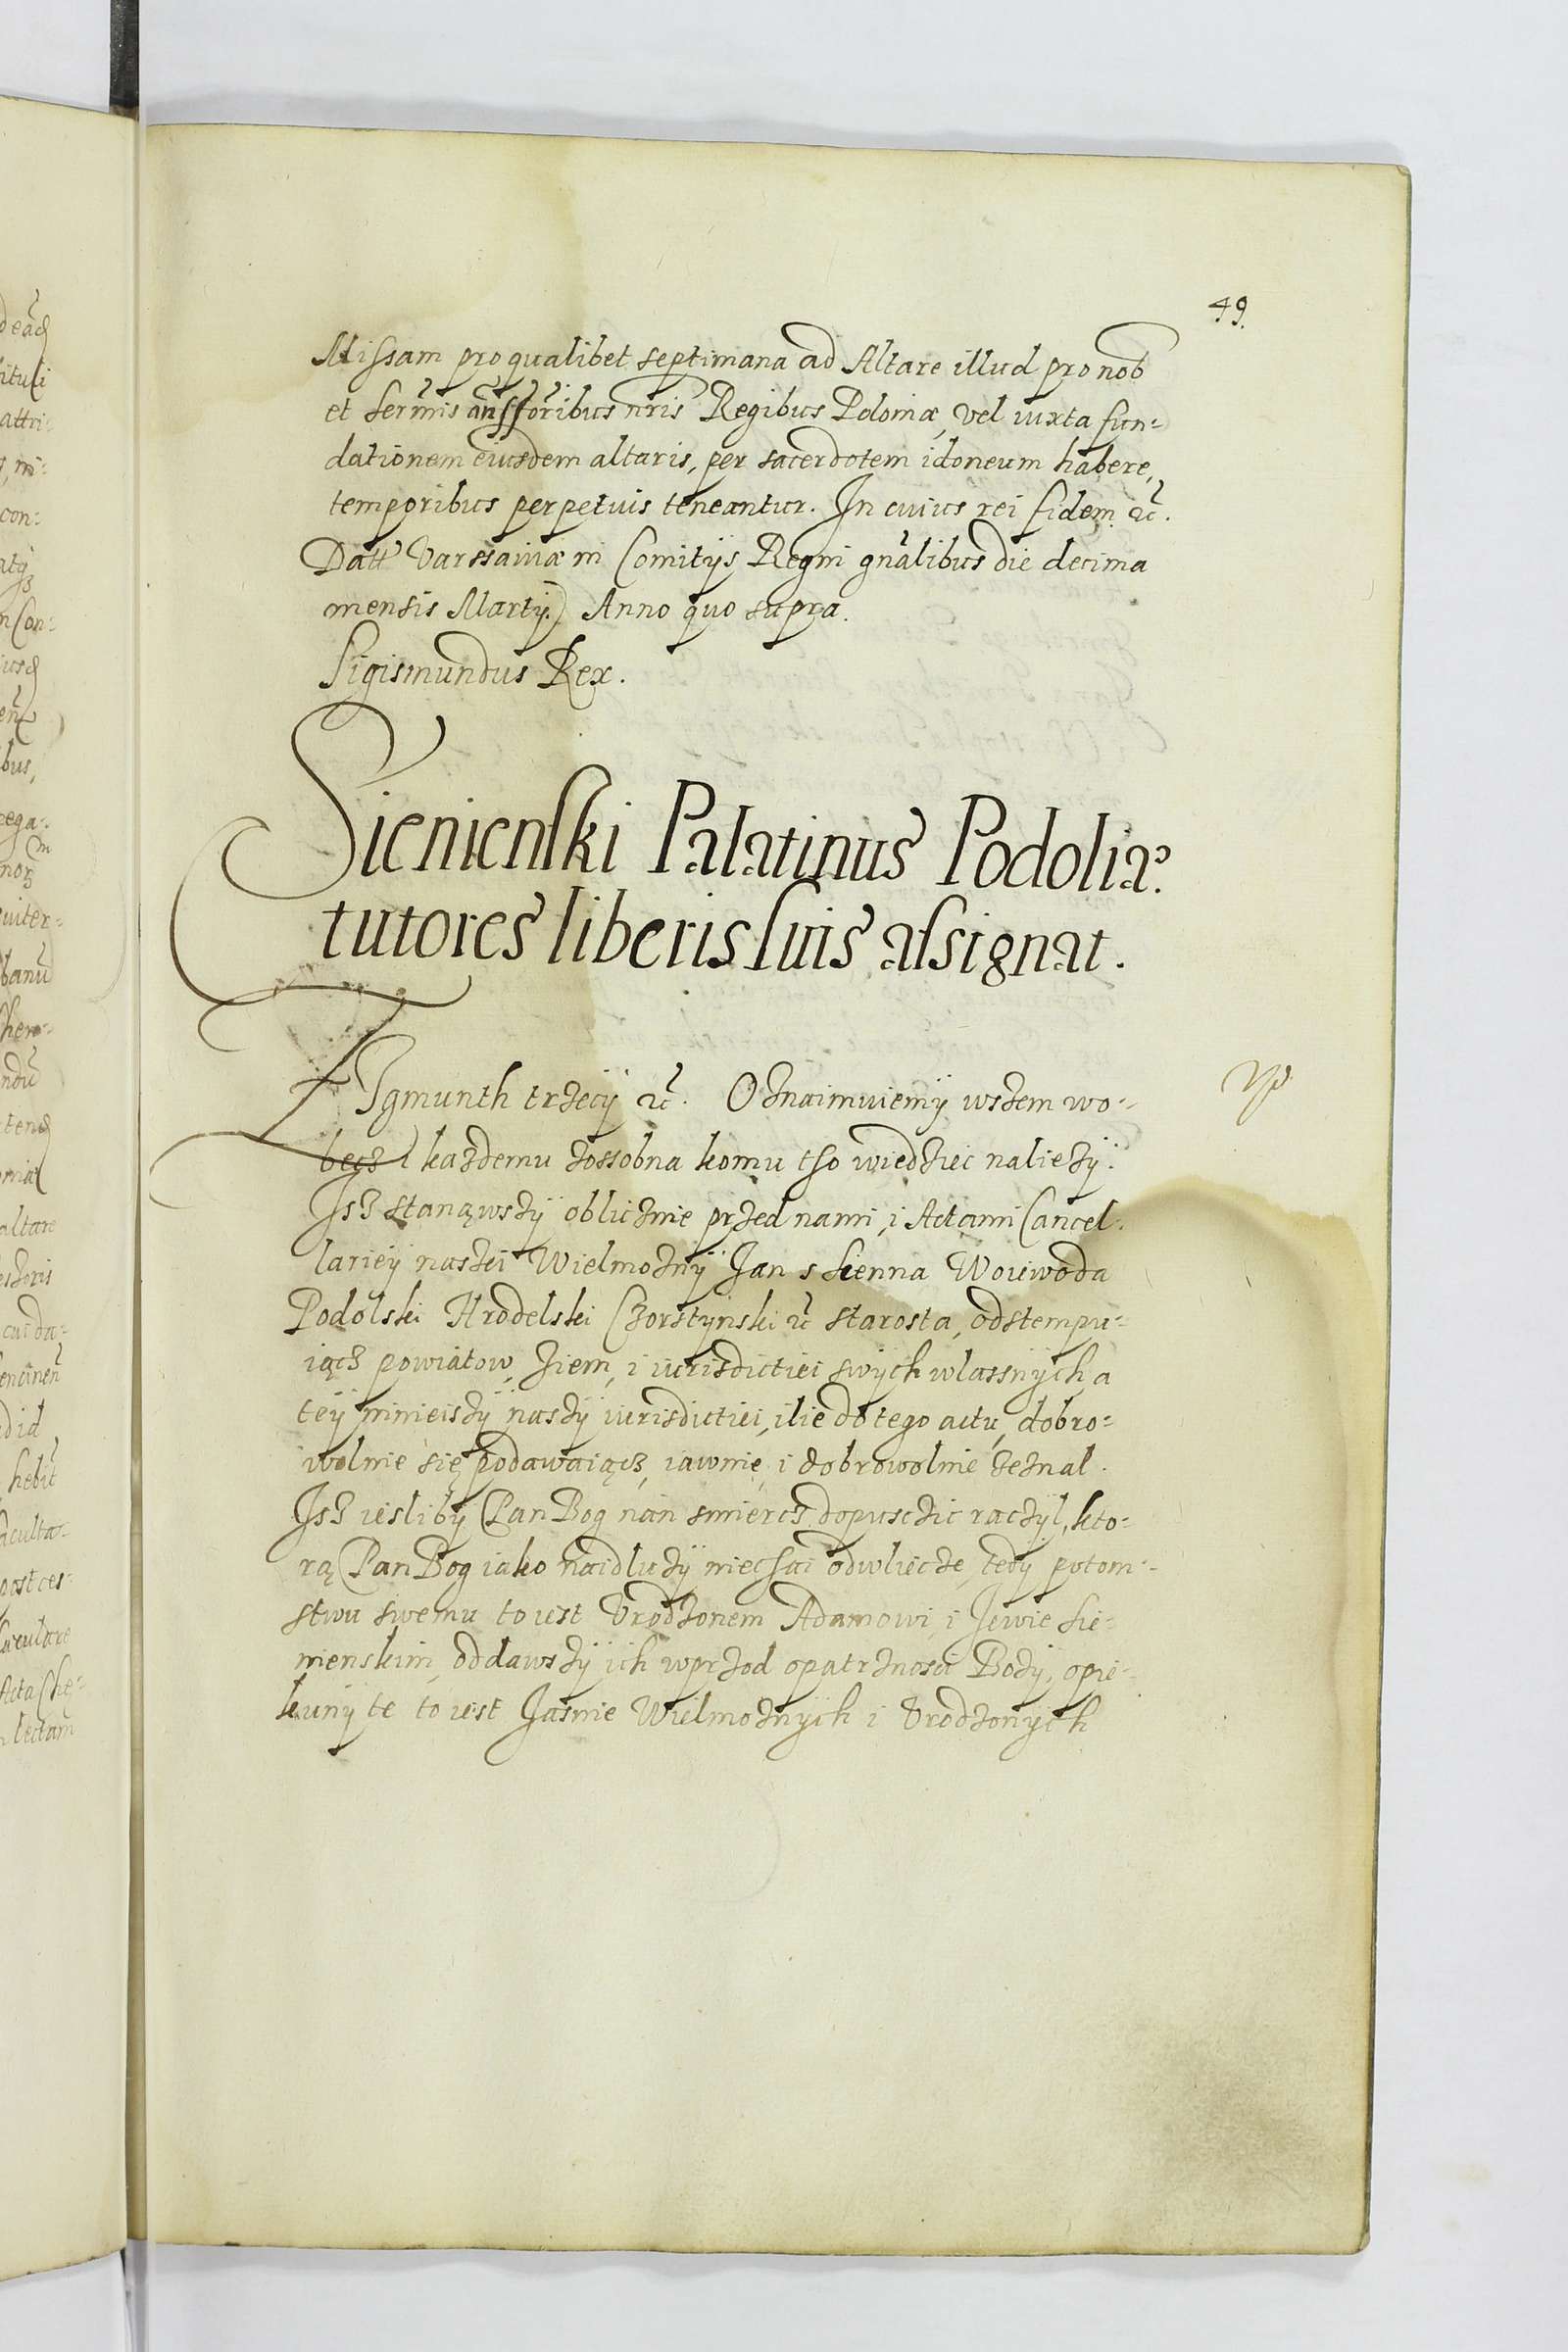 49.
Missam pro qualibet septimana ad Altare illud pro nob
et sermis anssoribus nris Regibus Poloniæ, vel iuxta fun=
dationem eiusdem altaris, per sacerdotem idoneum habere,
temporibus perpetuis teneantur. In cuius rei fidem etc.
Datt Varssaviæ in Comitijs Regni gnalibus die decima
mensis Martij. Anno quo supra.
Sigismundus Rex.
Sienienski Palatinus Podoliæ
tutores liberis suis assignat.
Zÿgmunth trzeciÿ etc. Oznaimuiemÿ wszem wo=
becz i każdemu zossobna komu tho wiedziec nalieżÿ.
Isz stanąwszÿ oblicznie przed nami, i Actami Cancel=
larieÿ naszei Wielmożnÿ Jan s Sienna Woiewoda
Podolski Hrodelski Czorstÿnski etc starosta, odstempu=
iącz powiatow, ziem, i iurisdictiei swÿch wlassnÿch, a
teÿ mnieiszÿ naszÿ iurisdictiei, ilie do tego actu, dobro=
wolnie się podawaiącz, iawnie, i dobrowolnie zeznal.
Isz iesliby Pan Bog nan smiercz dopusczic raczÿl, kto=
rą Pan Bog iako naidluzÿ niechai odwliecze, tedÿ potom=
stwu swemu to iest Urodzonem Adamowi, i Jewie Sie=
nienskim, oddawszÿ ich wprzod opatrznosci Bożÿ, opie=
kunÿ te to iest Jasnie Wielmożnÿch i Urodzonÿch